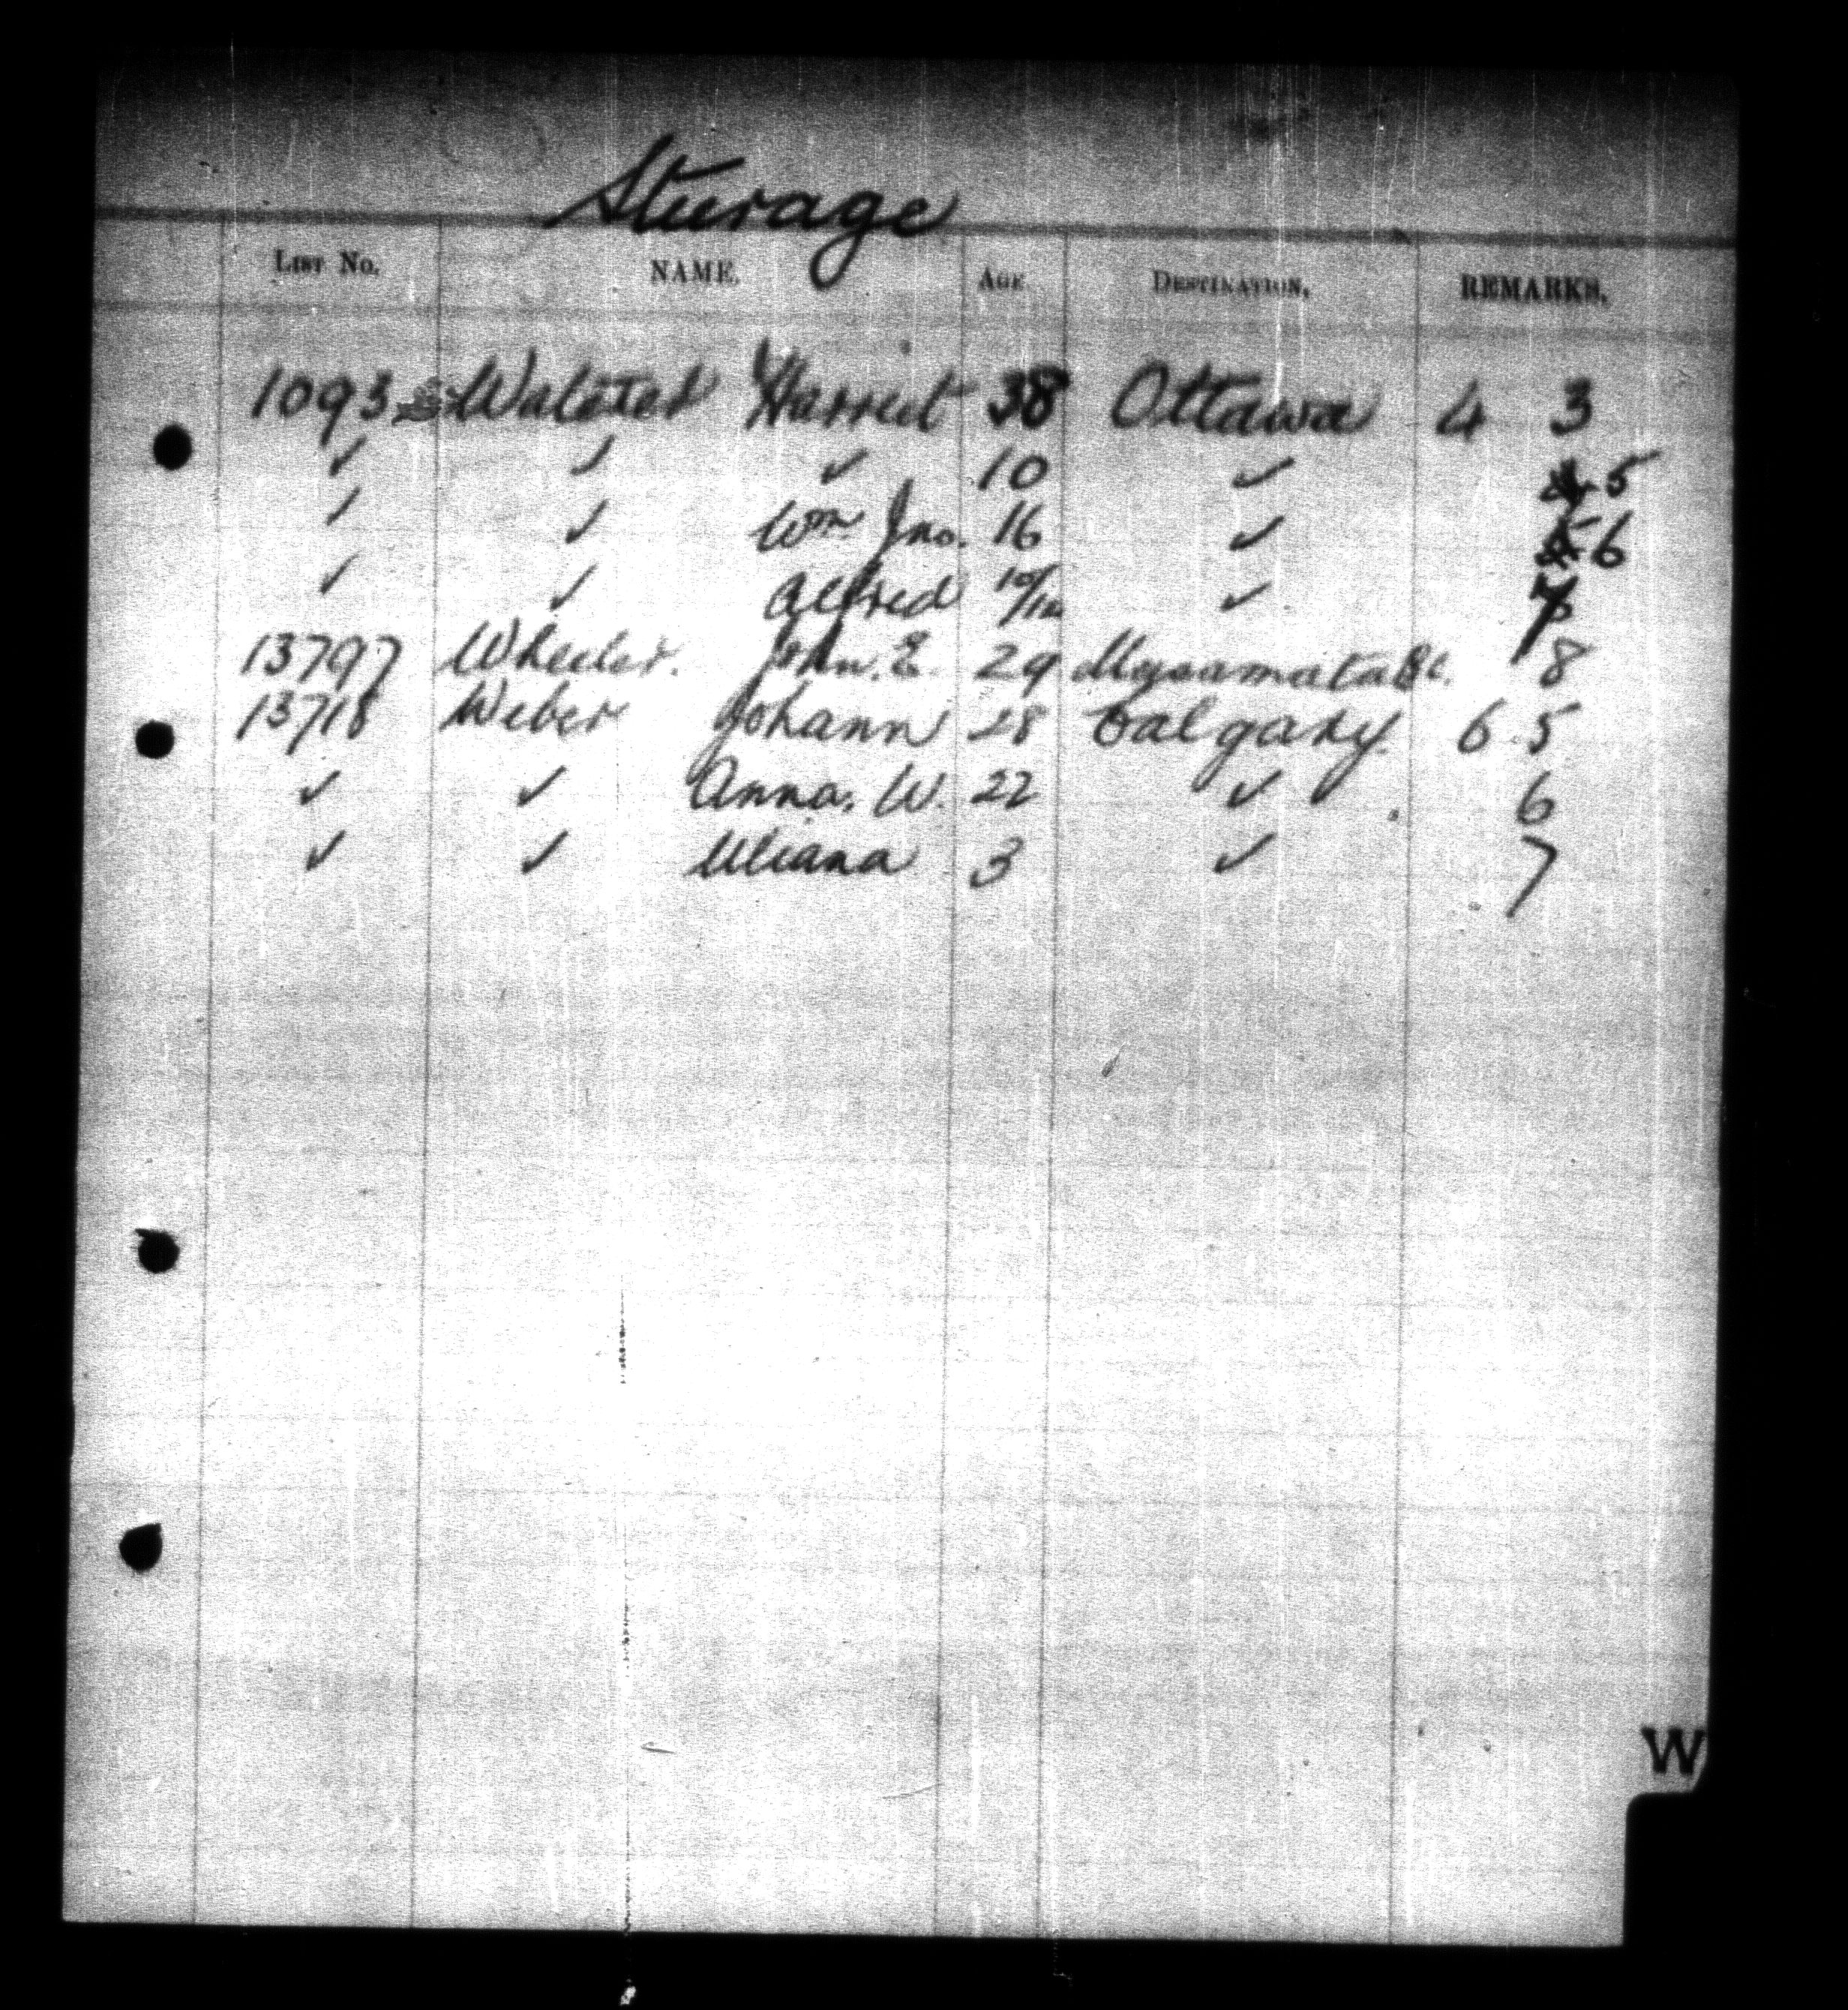 Steerage
LIST No. NAME. AGE DESTINATION, REMARKS.
1093 Harriet 38 Ottawa 4 3
✓ ✓ ✓ 10 ✓ 5
✓ ✓ Wm Jno. 16 ✓ 6
✓ ✓ Alfred ✓
13797 Wheeler. John. E. 29 8
13718 Weber Johann 28 Calgary. 6 5
✓ ✓ Anna. W. 22 ✓ 6
✓ ✓ Uliana 3 ✓ 7
W